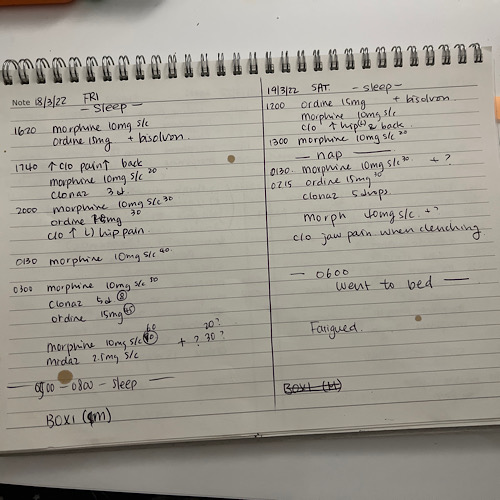 Note 18/3/22 FRI
- Sleep -
1620 morphine 10mg s/c
ordine 15mg + bisolvon
1740 ↑ c/o pain↑ back
morphine 10mg s/c 20
clonaz 3d
2000 morphine 10mg s/c 30
ordine 15mg 30
c/o ↑ L) hip pain
0130 morphine 10mg s/c 40
0300 morphine 10mg s/c 50
clonaz 5d (8)
ordine 15mg (45)
morphine 10mg s/c 60 + ? 20? 30?
midaz 2.5mg s/c
0800 - sleep
BOX1
19/3/22 SAT - sleep -
1200 ordine 15mg + bisolvon
morphine 10mg s/c
c/o ↑ hip & back
1300 morphine 10mg s/c 20
- nap -
0130 morphine 10mg s/c 30 + ?
0215 ordine 15mg 30
clonaz 5 drops
morph 10mg s/c + ?
c/o jaw pain when clenching
- 0600
went to bed -
Fatigued.
BOX1